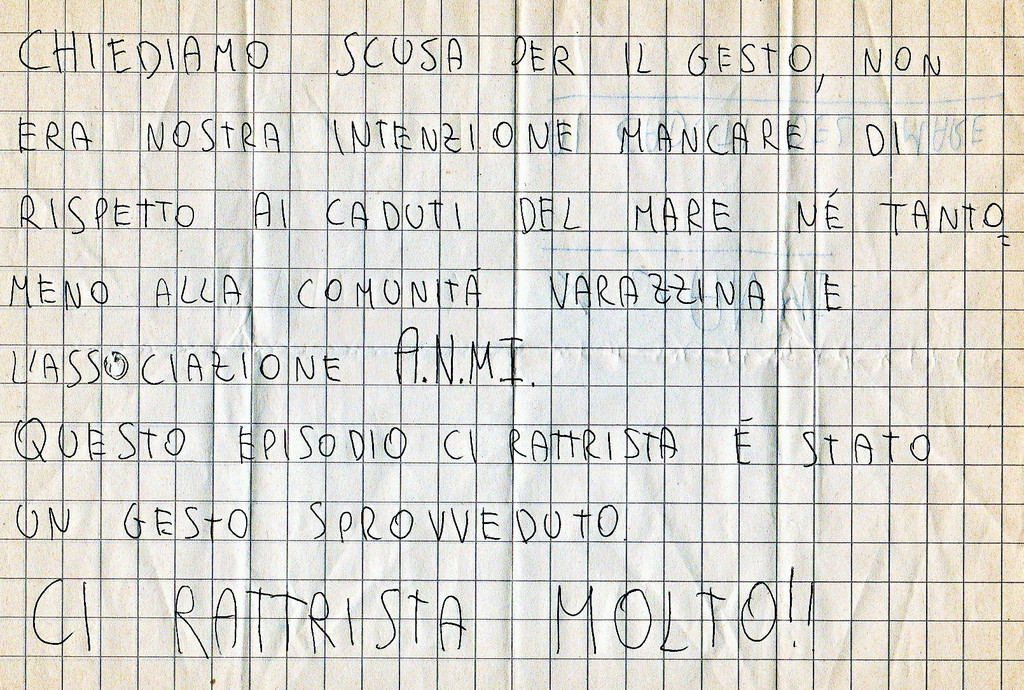 CHIEDIAMO SCUSA PER IL GESTO, NON
ERA NOSTRA INTENZIONE MANCARE DI
RISPETTO AI CADUTI DEL MARE NÉ TANTO=
MENO ALLA COMUNITÁ VARAZZINA E
L'ASSOCIAZIONE A.N.M.I.
QUESTO EPISODIO CI RATTRISTA É STATO
UN GESTO SPROVVEDUTO.
CI RATTRISTA MOLTO!!